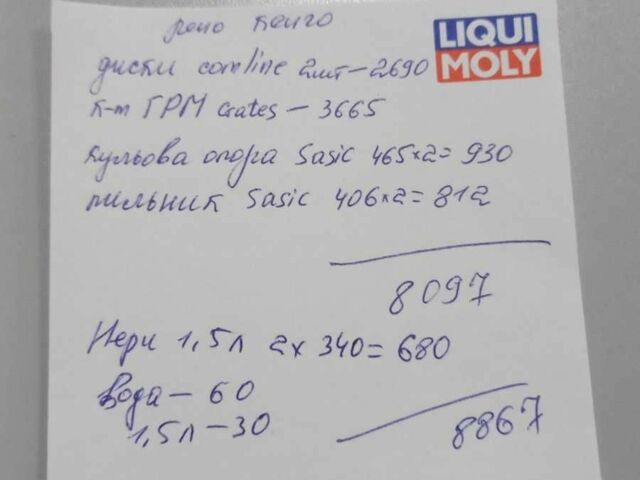 рено Кенго
LIQUI
MOLY
диски comline 2шт-2690
к-т ГРМ Gates - 3665
кульова опора Sasic 465x2=930
пильник Sasic 406x2=812
8097
1,5л 2x 340=680
вода-60
1,5л-30
8867